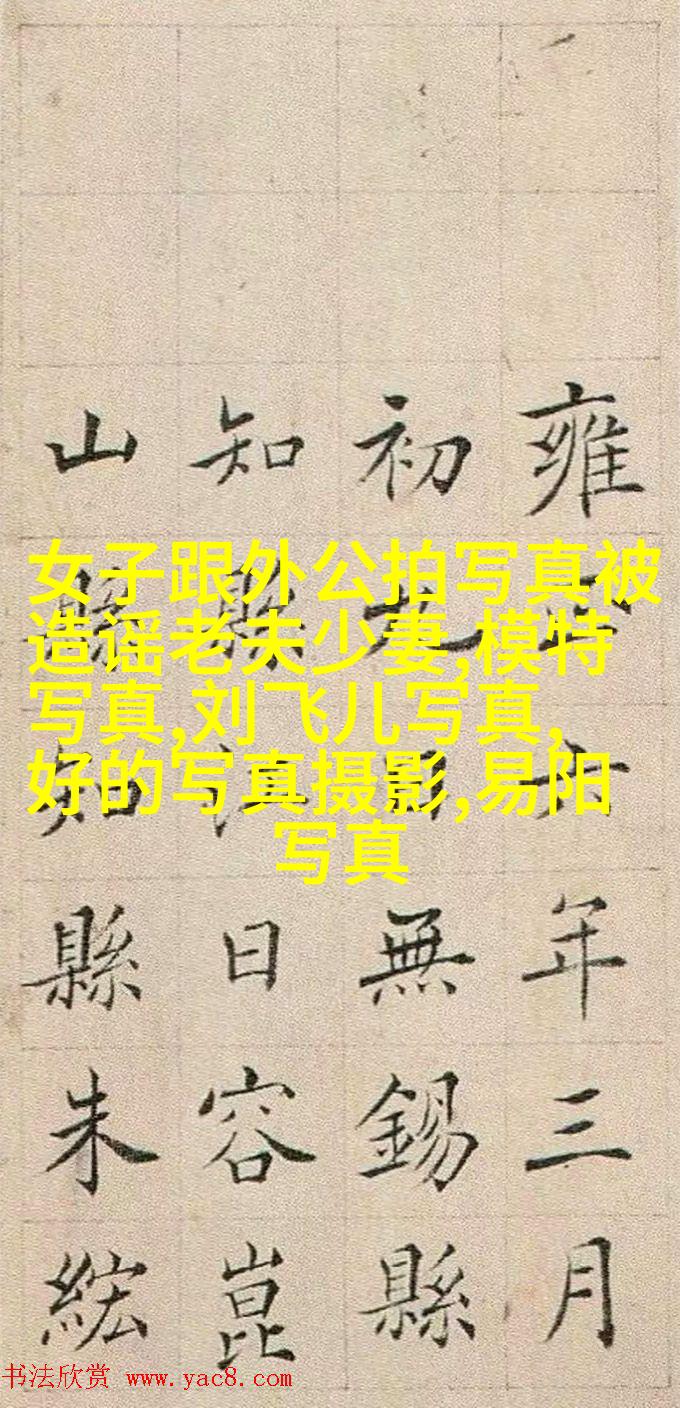 女子跟外公拍写真被
造谣老夫少妻,模特
写真,刘飞儿写真,
好的写真摄影,易阳
写真
雍正六年三月
初九日無錫縣
知縣江日容崑
山縣知縣朱紘
书法欣赏 www.yac8.com